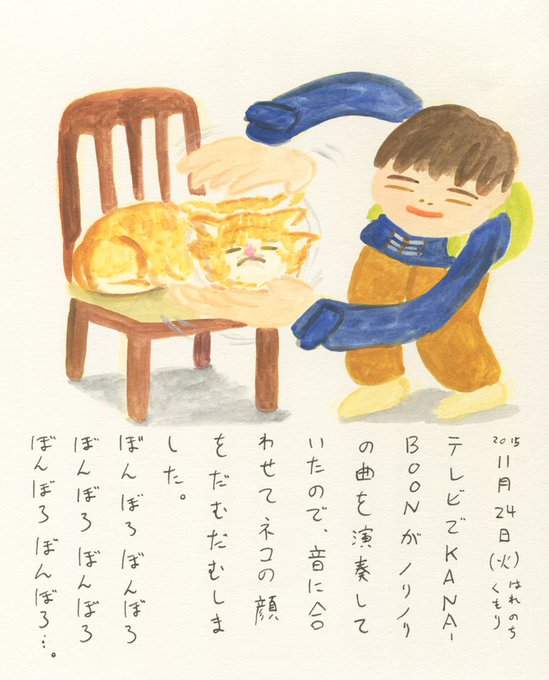 2015 11月24日(火)はれのちくもり
テレビでKANA-
BOONがノリノリ
の曲を演奏して
いたので、音に合
わせてネコの顔
をだむだむしま
した。
ぼんぼろぼんぼろ
ぼんぼろぼんぼろ
ぼんぼろぼんぼろ…。